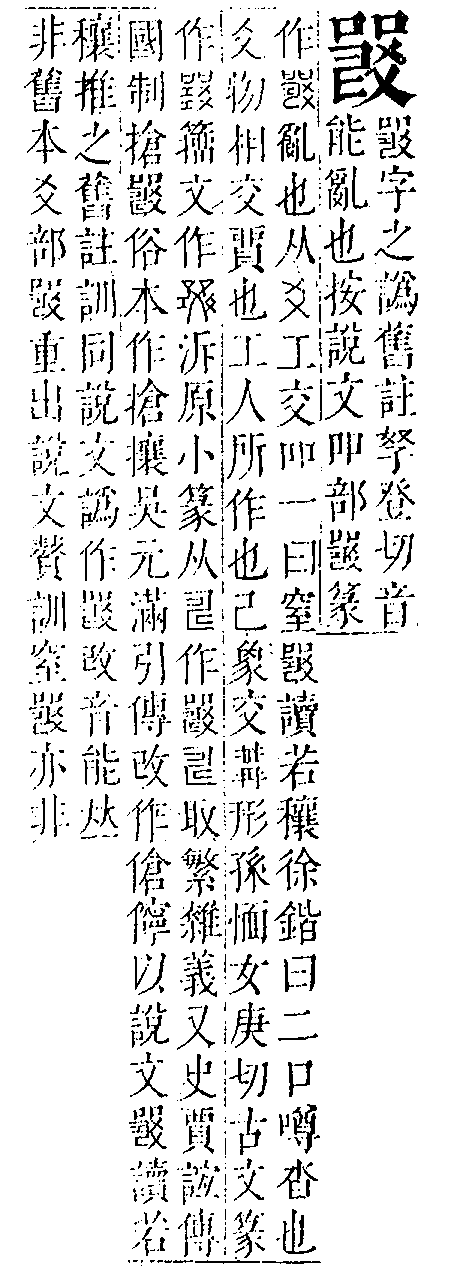 𤕦字之譌舊註孥登切音
能亂也按說文吅部𤕦篆
作𤕦亂也从爻工交吅一曰窒𤕦讀若穰徐鍇曰二口噂沓也
爻物相交質也工人所作也己象交構形孫愐女庚切古文篆
作籀文作泝原小篆从作𤕦取繁雜義又史賈誼傳
國制搶𤕦俗本作搶攘吳元滿引傳改作傖儜以說文𤕦讀若
穰推之舊註訓同說文譌作改音能𠀤
非舊本爻部𤕦重出說文贊訓窒𤕦亦非